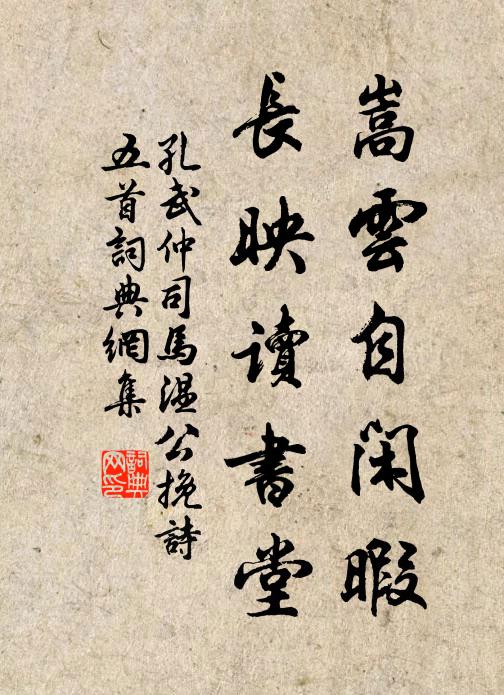 嵩雲自閑暇
長映讀書堂
孔武仲司馬溫公挽詩
五首詞典網集
詞典网印